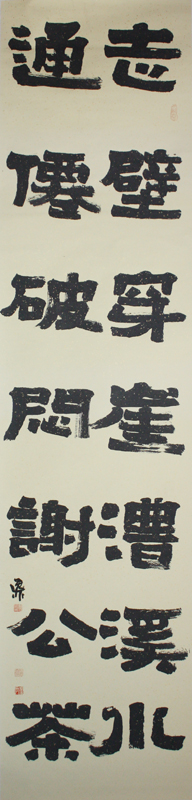 志壁穿崖漕溪水
通僊破悶謝公茶